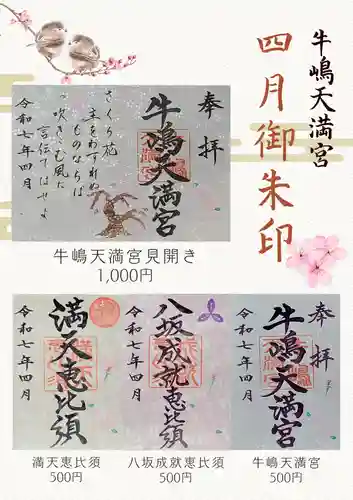 牛嶋天満宮
四月御朱印
奉拝
牛嶋天満宮
さくら花
主をわすれぬ
ものならば
吹きこむ風に
言伝てはせよ
令和七年四月
牛嶋天満宮見開き
1,000円
奉拝
牛嶋天満宮
令和七年四月
八坂成就恵比須
令和七年四月
満天恵比須
令和七年四月
満天恵比須
500円
八坂成就恵比須
500円
牛嶋天満宮
500円